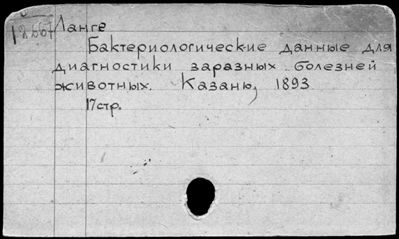 Ланге
Бактериологические данные для
диагностики заразных болезней
животных. Казань, 1893
17стр.